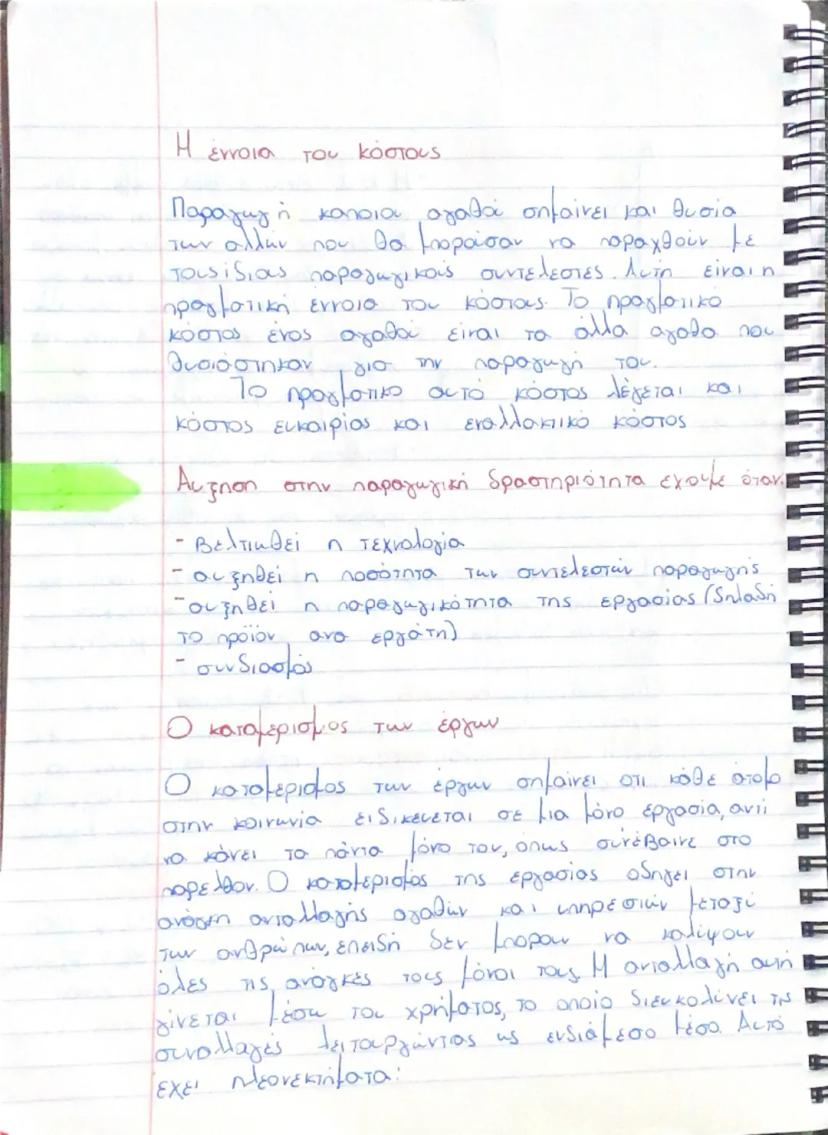 Η έννοια του κόστους
Παραγωγή κάποιου αγαθού σημαίνει και θυσία
των αλλών που θα μπορούσαν να παραχθούν με
τους ίδιους παραγωγικούς συντελεστές. Αυτή είναι η
πραγματική έννοια του κόστους. Το πραγματικό
κόστος ένος αγαθού είναι τα άλλα αγαθα που
θυσιάστηκαν για την παραγωγή του.
Το πραγματικο αυτό κόστος λέγεται και
κόστος ευκαιρίας και εναλλακτικό κόστος
Αυξηση στην παραγωγική δραστηριότητα εχουμε όταν.
- βελτιωθεί η τεχνολογία
- αυξηθεί η ποσότητα των συντελεστών παραγωγής
- αυξηθεί η παραγωγικότητα της εργασίας (δηλαδή
το προϊόν ανα εργάτη)
- συνδιασμός
Ο καταμερισμος των έργων
Ο καταμερισμος των έργων σημαίνει οτι κάθε άτομο
στην κοινωνία ειδικευεται σε μια μόνο εργασία, αντί
να κάνει τα πάντα μόνο του, όπως συνέβαινε στο
παρελθον. Ο καταμερισμός της εργασίας οδηγει στην
ανάγκη ανταλλαγής αγαθών και υπηρεσιών μεταξύ
των ανθρώπων, επειδή δεν μπορουν να καλύψουν
όλες τις ανάγκές τους μόνοι τους. Η ανταλλαγή αυτή
γίνεται μέσω του χρήματος, το οποίο διευκολύνει τις
συναλλαγές λειτουργώντας ως ενδιάμεσο μέσο. Αυτό
εχει πλεονεκτήματα: